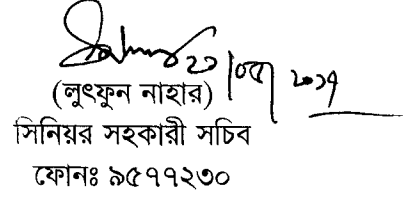 ২০/০৫/২০১৭
(লুৎফুন নাহার)
সিনিয়র সহকারী সচিব
ফোনঃ ৯৫৭৭২৩০